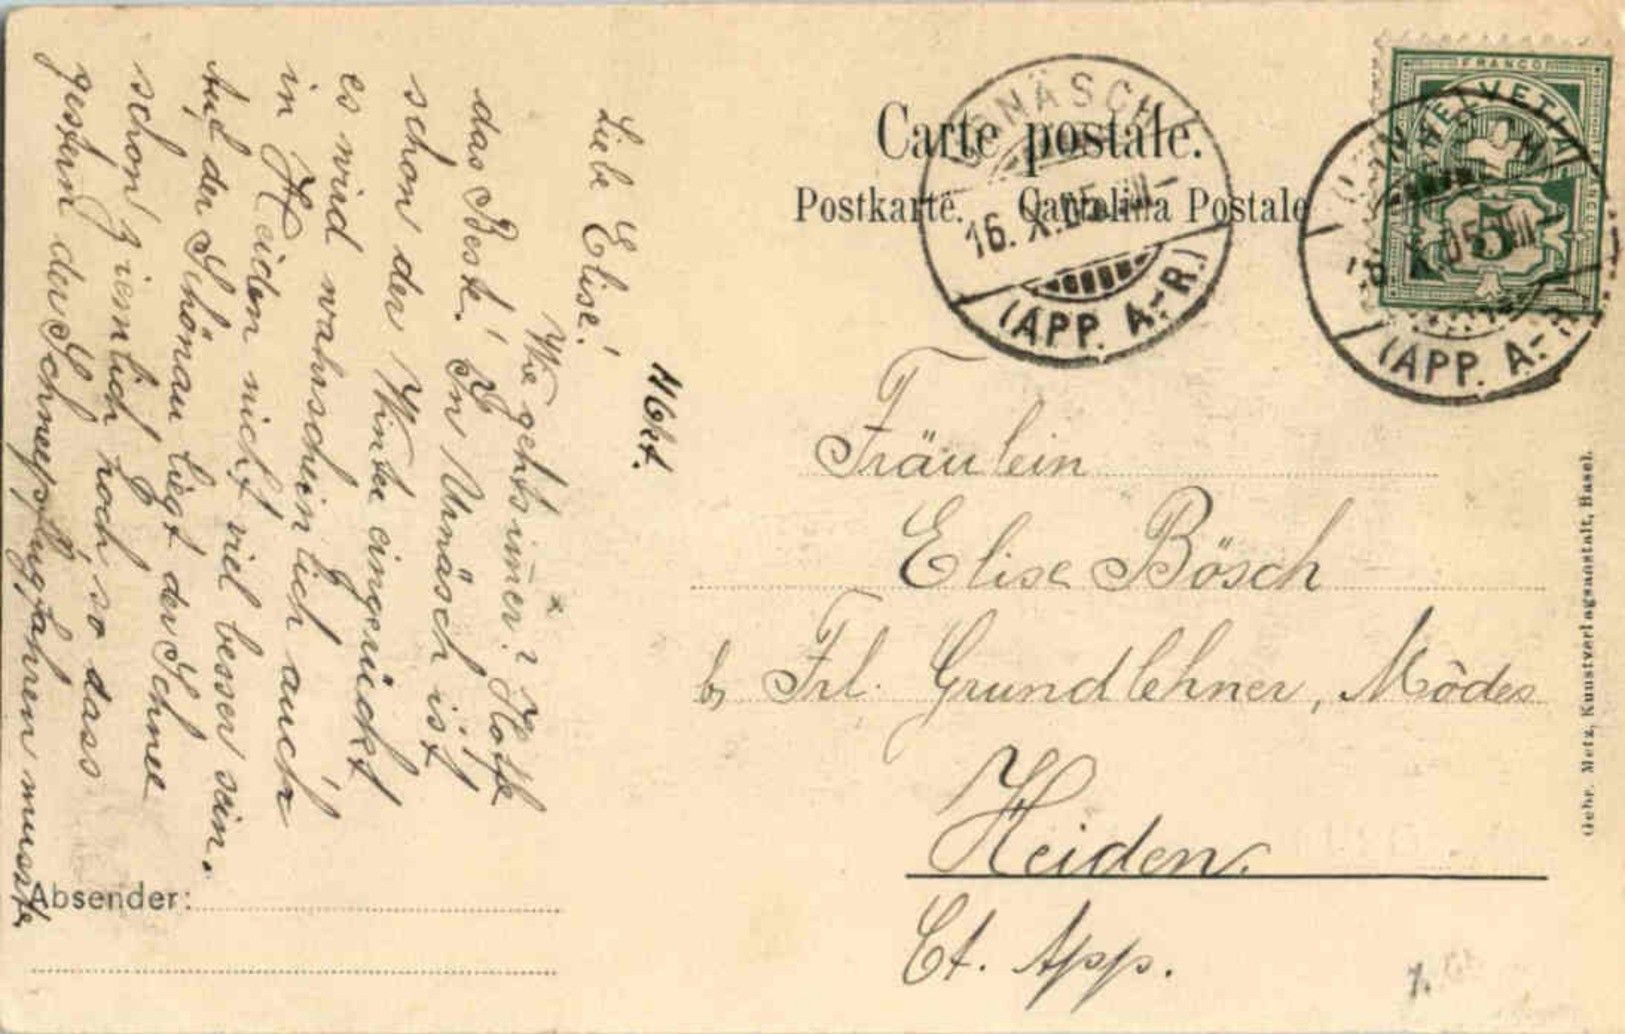 Carte postale.
Postkarte. Cartolina Postale
URNÄSCH
16. X. 05. VIII
(APP. A.-R.)
FRANCO
HELVETIA
5
X. 05. VIII
(APP. A.-R.)
16 Okt.
Liebe Elise!
Wie gehts im̄er? Hoffe
das Beste! In Urnäsch ist
schon der Winter eingerückt
es wird wahrscheinlich auch
in Heiden nicht viel besser sein.
Auf der Schönau liegt der Schnee
schon ziemlich hoch, so dass
gestern der Schneepflug fahren musste
Absender:
Fräulein
Elise Bösch
b. Frl. Grundlehner, Môdes
Heiden.
Ct. App.
Gebr. Metz, Kunstverlagsanstalt, Basel.